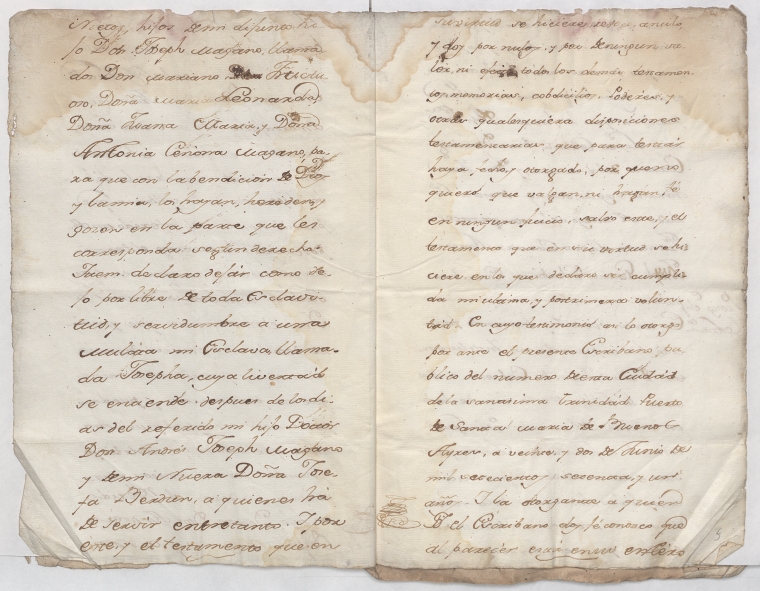 Nietos, hijos de mi difunto hi-
jo Don Joseph Magano, llama-
dos Don Mariano Fructu-
oso, Doña Maria Leonarda,
Doña Juana Maria, y Doña
Antonia Ceriona Magano, pa-
ra que con la bendicion de Dios
y la mia, los hayan, hereden, y
gozen en la parte que les
corresponda segun derecho.
Item. declaro dejár como de-
jo por libre de toda Esclavi-
tud, y servidumbre â una
Mulata mi Esclava, llama-
da Josepha, cuya livertad
se entiende, despues de los di-
as del referido mi hijo Doctor
Don Andrés Joseph Magano
y de mi Nuera Doña Jose-
fa Berdun, a quienes hà
de servir entretanto. Y por
este, y el testamento que en
su virtud se hiciere, revoco, anulo
y doy por nulos, y por de ningun va-
lor, ni efecto todos los demás testamen-
tos, memorias, cobdicilos, Poderes, y
otras qualesquiera disposiciones
testamentarias, que para testár
haya echo, y otorgado, por que no
quiero que valgan, ni hagan fé
en ningun juicio, salvo este, y el
testamento que en su virtud se hi-
ciere, en los que declaro ser cumpli-
da mi ultima, y postrimera volun-
tad. En cuyo testimonio asi lo otorgo
por ante el presente Escribano, pu-
blico del numero de esta Ciudad
de la Santisima Trinidad Puerto
de Santa Maria de Buenos
Ayres, a veinte, y dos de Junio de
mil setecientos, setenta, y un
años. Y la otorgante a quien
Yo el Escribano doy fé conozco que
al parecer está en su entero